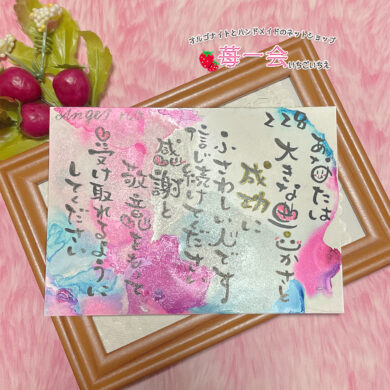 オルゴナイトとハンドメイドのネットショップ
苺一会
いちごいちえ
228
あなたは
大きな豊かさと
成功に
ふさわしい人です
信じ続けてください
感謝と
敬意をもって
受け取れるように
してください
angel